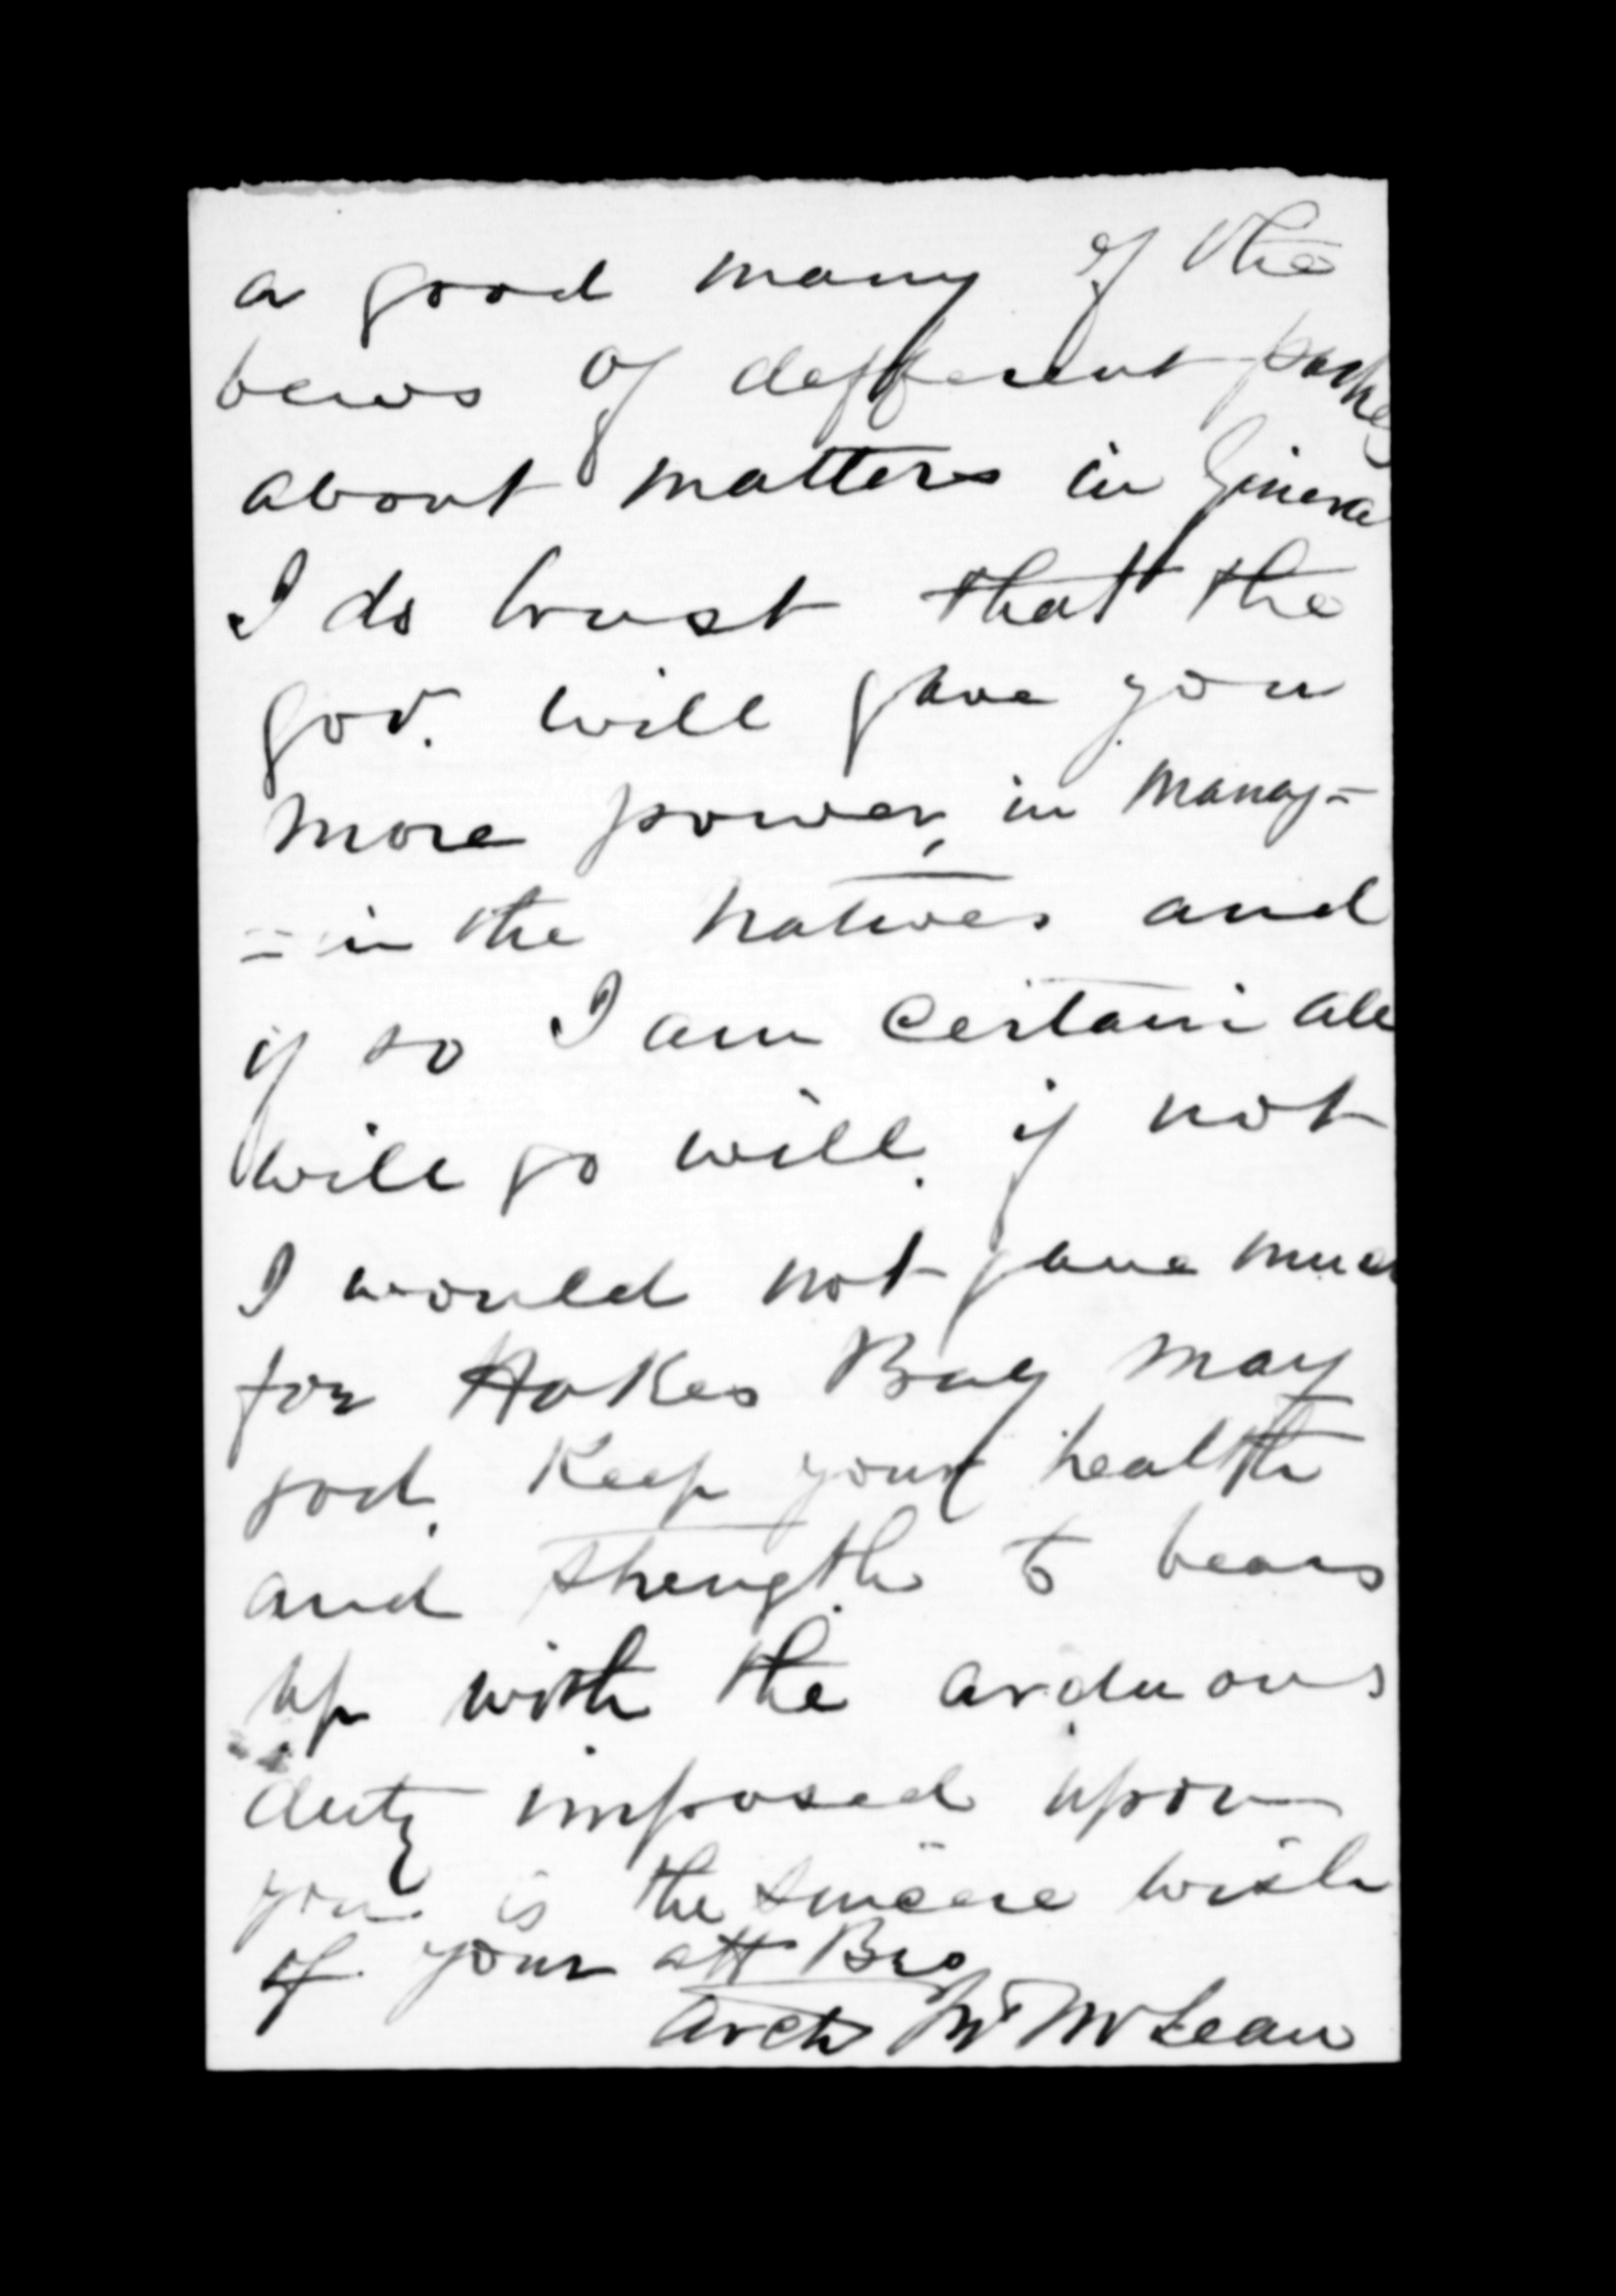 a good many of the
vews of defferent parties
about matters in Ginera
I do trust that the
gov. will gave you
more power, in manag=
=in the natives and
if so I am certain all
will go will. if not
I would not gave much
for Hakes Bay may
god. Keep your health
and strength to bears
up with the arduous
duty imposed upon
you is the sincere wish
of your att Bro
Arch Jn McLean